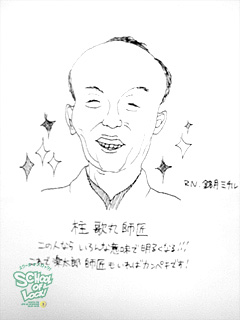 R.N. 鏡月ミチル
桂 歌丸師匠
この人なら いろんな意味で明るくなる!!!
これで楽太郎 師匠もいればカンペキです!
SCHOOL OF LOCK!